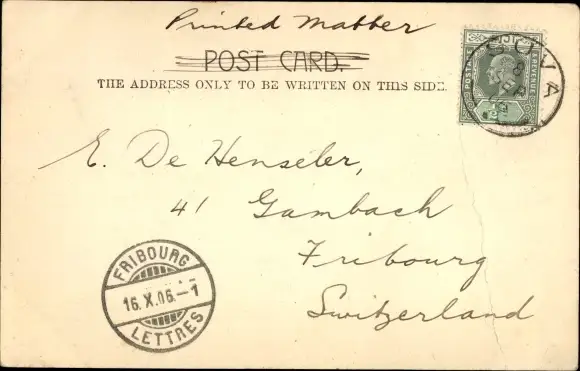 Printed Matter
POST CARD.
THE ADDRESS ONLY TO BE WRITTEN ON THIS SIDE.
POSTAGE & REVENUE
SUVA
8
SEP
E. De Henseler,
41 Gambach
Fribourg
Switzerland
FRIBOURG
16.X.06.-1
LETTRES